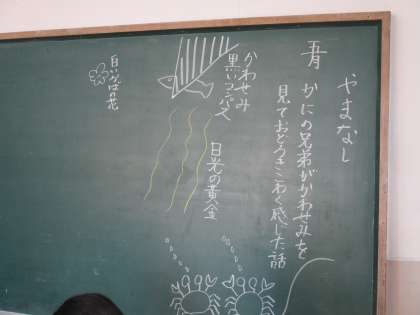 やまなし
五月 かにの兄弟がかわせみを
見ておどろきこわく感じた話
かわせみ
黒いコンパス
日光の黄金
白いかばの花